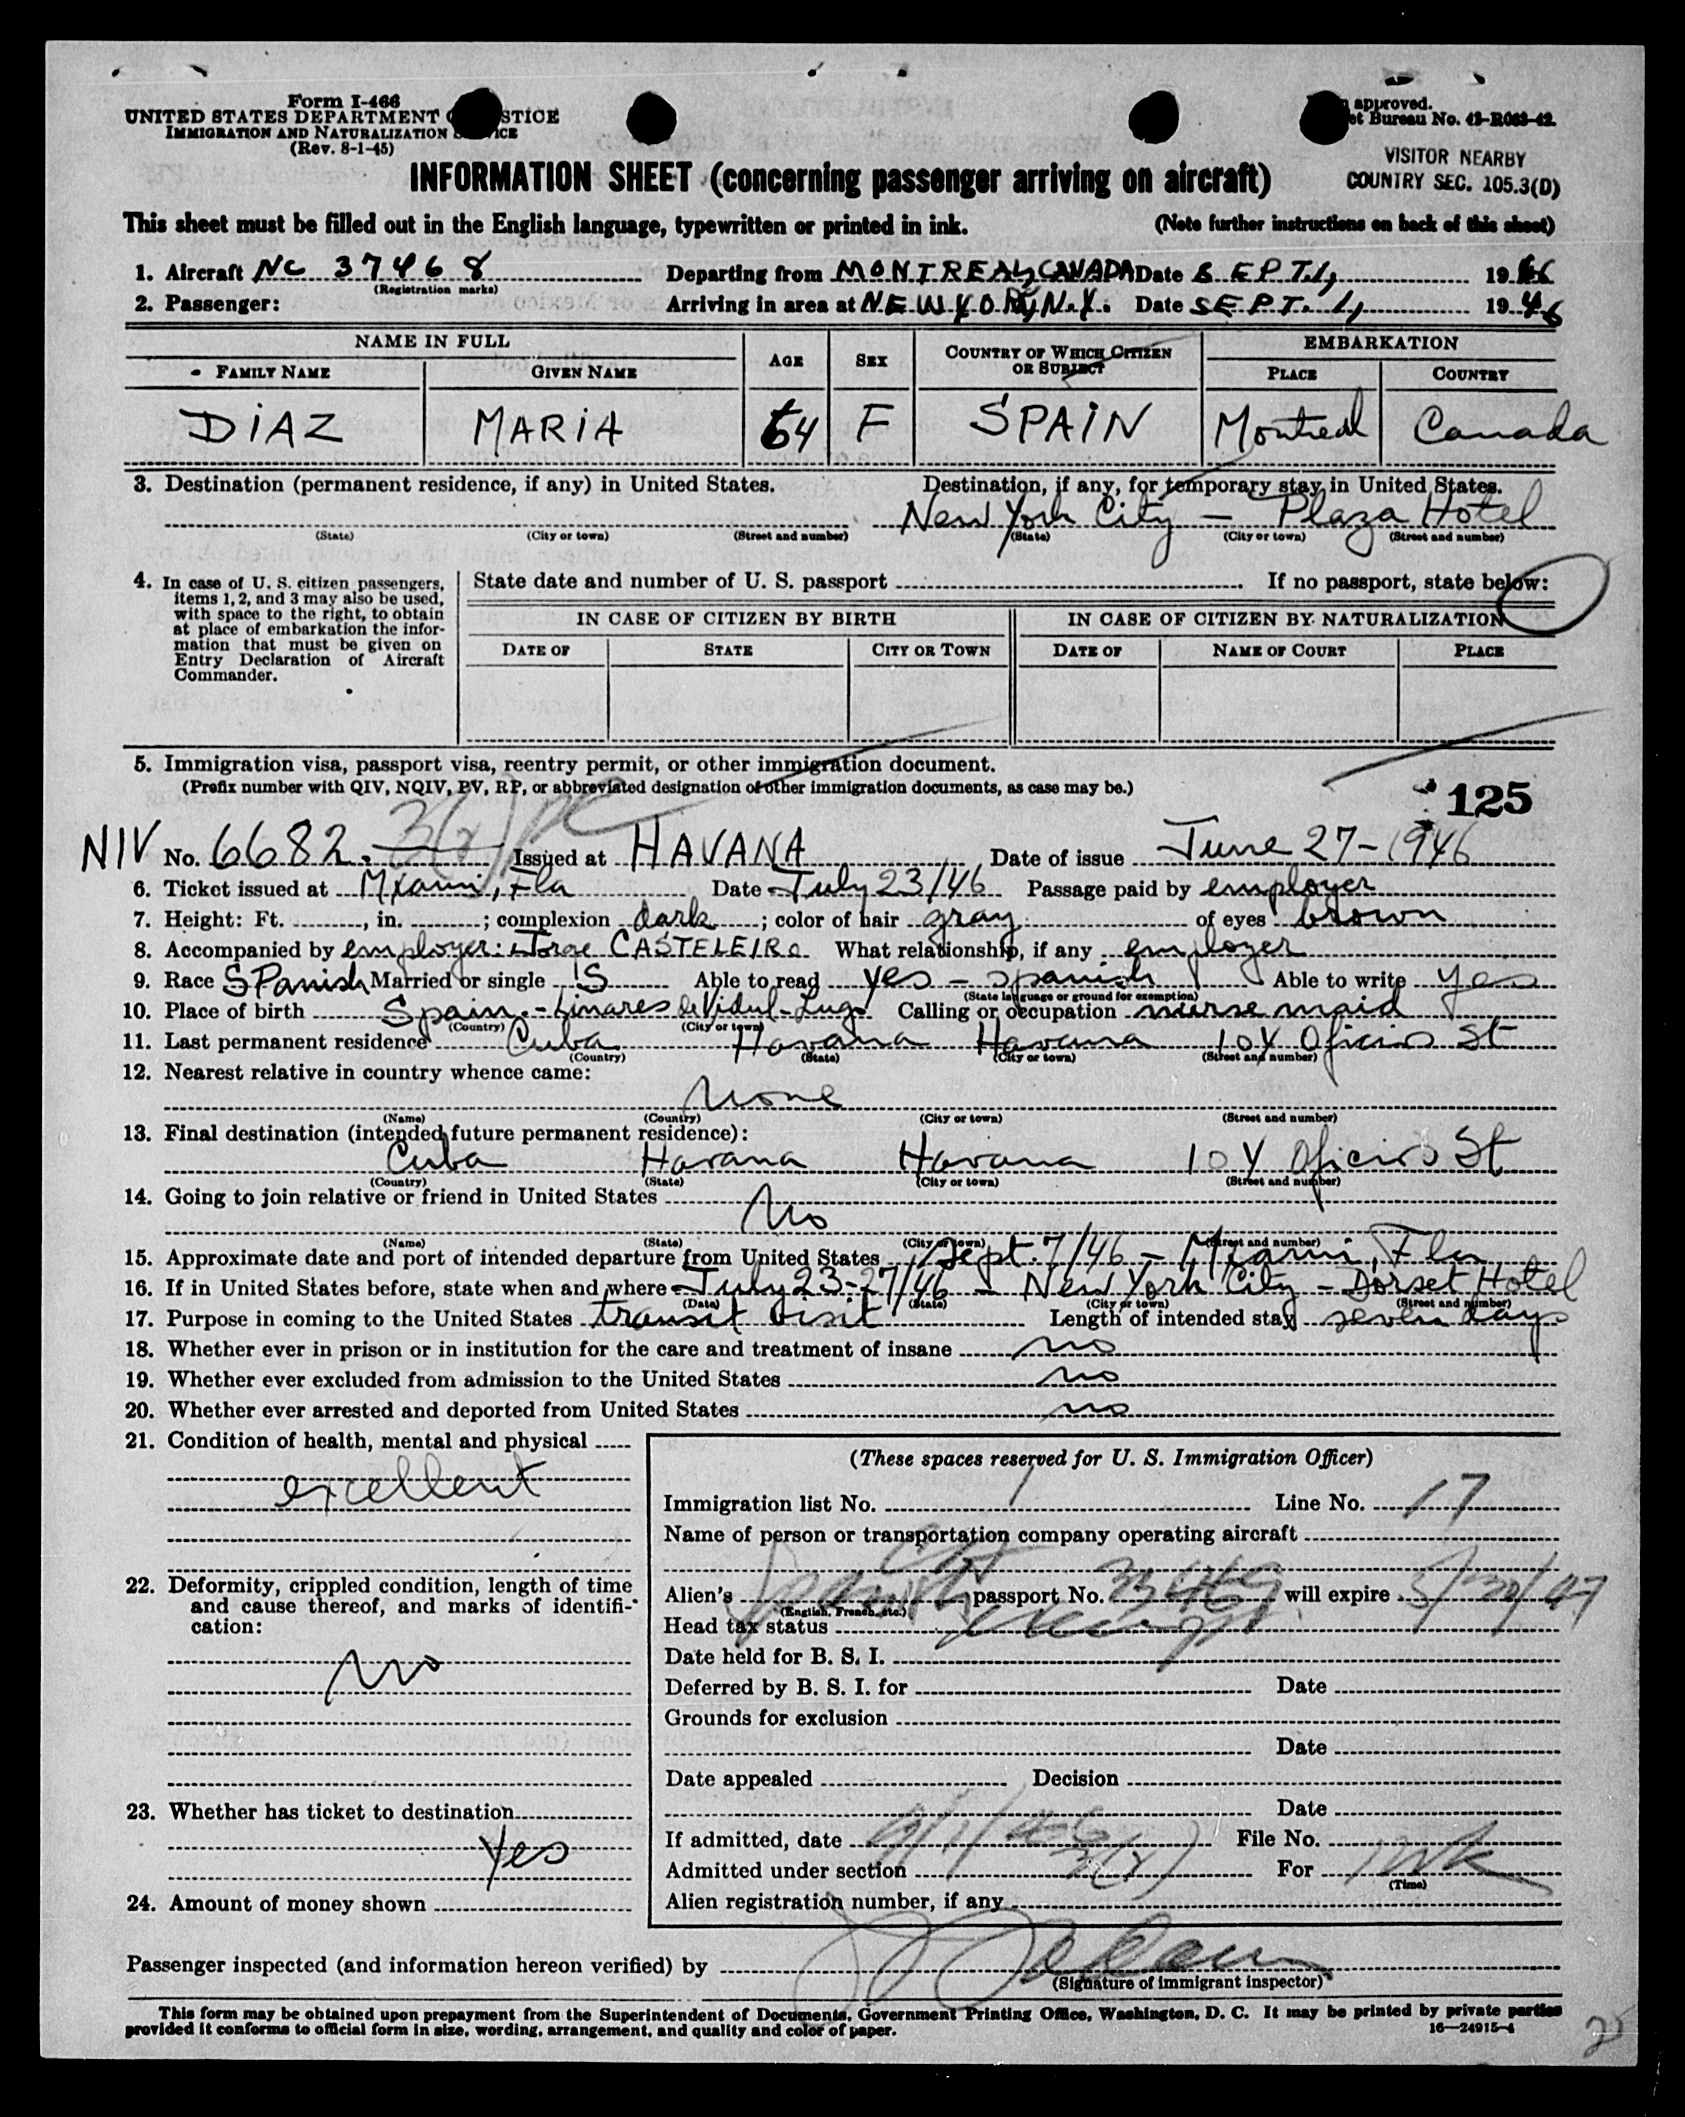 Form I-466
UNITED STATES DEPARTMENT STICE
IMMIGRATION AND NATURALIZATION ICE
(Rev. 8-1-45)
approved.
et Bureau No. 43-R063-42.
VISITOR NEARBY
COUNTRY SEC. 105.3(D)
INFORMATION SHEET (concerning passenger arriving on aircraft)
This sheet must be filled out in the English language, typewritten or printed in ink. (Note further instructions on back of this sheet)
1. Aircraft NC 37468 Departing from MONTREAL, CANADA Date SEPT. 1, 1946
(Registration marks)
2. Passenger: Arriving in area at NEW YORK, N.Y. Date SEPT. 1, 1946
NAME IN FULL AGE SEX COUNTRY OF WHICH CITIZEN OR SUBJECT EMBARKATION
FAMILY NAME GIVEN NAME PLACE COUNTRY
DIAZ MARIA 64 F SPAIN Montreal Canada
3. Destination (permanent residence, if any) in United States. Destination, if any, for temporary stay in United States.
New York City - Plaza Hotel
(State) (City or town) (Street and number) (State) (City or town) (Street and number)
4. In case of U. S. citizen passengers, items 1, 2, and 3 may also be used, with space to the right, to obtain at place of embarkation the information that must be given on Entry Declaration of Aircraft Commander.
State date and number of U. S. passport If no passport, state below:
IN CASE OF CITIZEN BY BIRTH IN CASE OF CITIZEN BY NATURALIZATION
DATE OF STATE CITY OR TOWN DATE OF NAME OF COURT PLACE
5. Immigration visa, passport visa, reentry permit, or other immigration document.
(Prefix number with QIV, NQIV, PV, RP, or abbreviated designation of other immigration documents, as case may be.)
125
NIV No. 6682. Issued at HAVANA Date of issue June 27-1946
6. Ticket issued at Miami, Fla Date July 23/46 Passage paid by employer
7. Height: Ft. , in. ; complexion dark ; color of hair gray of eyes brown
8. Accompanied by employer: Jorge CASTELEIRO What relationship, if any employer
9. Race SPanish Married or single S Able to read yes - spanish Able to write yes
(State language or ground for exemption)
10. Place of birth Spain - Linares de Vidul - Lugo Calling or occupation nurse maid
(Country) (City or town)
11. Last permanent residence Cuba Havana Havana 104 Oficios St
(Country) (State) (City or town) (Street and number)
12. Nearest relative in country whence came:
none
(Name) (Country) (City or town) (Street and number)
13. Final destination (intended future permanent residence):
Cuba Havana Havana 104 Oficios St
(Country) (State) (City or town) (Street and number)
14. Going to join relative or friend in United States
No
(Name) (State) (City or town) (Street and number)
15. Approximate date and port of intended departure from United States Sept. 7/46 - Miami, Fla
16. If in United States before, state when and where July 23-27/46 - New York City - Dorset Hotel
(Date) (State) (City or town) (Street and number)
17. Purpose in coming to the United States transit visit Length of intended stay seven days
18. Whether ever in prison or in institution for the care and treatment of insane no
19. Whether ever excluded from admission to the United States no
20. Whether ever arrested and deported from United States no
21. Condition of health, mental and physical
excellent
22. Deformity, crippled condition, length of time and cause thereof, and marks of identification:
No
23. Whether has ticket to destination
Yes
24. Amount of money shown
(These spaces reserved for U. S. Immigration Officer)
Immigration list No. 1 Line No. 17
Name of person or transportation company operating aircraft
Alien's passport No. will expire 5/30/47
(English, French, etc.)
Head tax status
Date held for B. S. I.
Deferred by B. S. I. for Date
Grounds for exclusion
Date
Date appealed Decision
Date
If admitted, date 9/1/46 File No.
Admitted under section 3(2) For 1 wk
(Time)
Alien registration number, if any
Passenger inspected (and information hereon verified) by
(Signature of immigrant inspector)
This form may be obtained upon prepayment from the Superintendent of Documents, Government Printing Office, Washington, D. C. It may be printed by private parties
provided it conforms to official form in size, wording, arrangement, and quality and color of paper. 16—24915-4